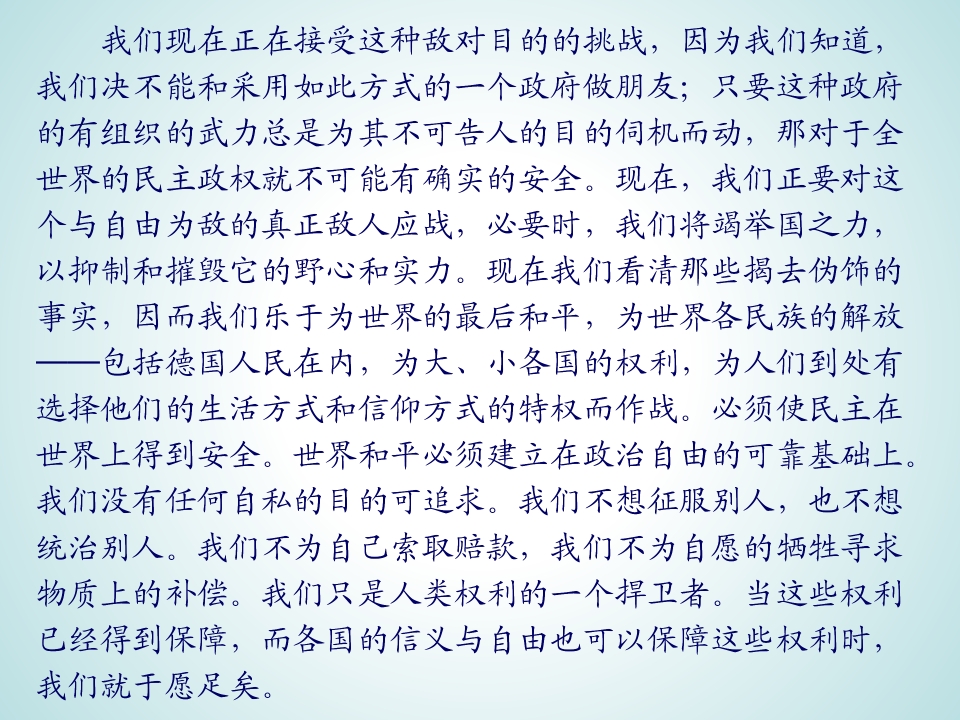 我们现在正在接受这种敌对目的的挑战，因为我们知道，
我们决不能和采用如此方式的一个政府做朋友；只要这种政府
的有组织的武力总是为其不可告人的目的伺机而动，那对于全
世界的民主政权就不可能有确实的安全。现在，我们正要对这
个与自由为敌的真正敌人应战，必要时，我们将竭举国之力，
以抑制和摧毁它的野心和实力。现在我们看清那些揭去伪饰的
事实，因而我们乐于为世界的最后和平，为世界各民族的解放
——包括德国人民在内，为大、小各国的权利，为人们到处有
选择他们的生活方式和信仰方式的特权而作战。必须使民主在
世界上得到安全。世界和平必须建立在政治自由的可靠基础上。
我们没有任何自私的目的可追求。我们不想征服别人，也不想
统治别人。我们不为自己索取赔款，我们不为自愿的牺牲寻求
物质上的补偿。我们只是人类权利的一个捍卫者。当这些权利
已经得到保障，而各国的信义与自由也可以保障这些权利时，
我们就于愿足矣。